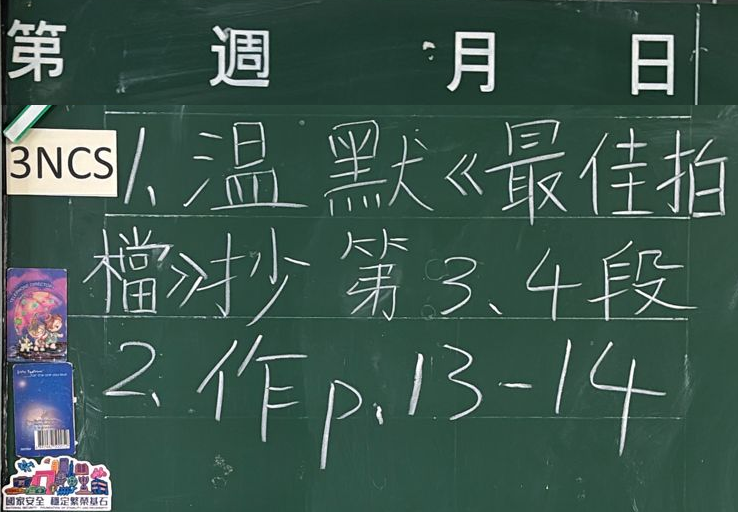 第 週 月 日
3NCS
1、温 默《最佳拍
檔》抄 第3、4段
2、作p.13-14
TELEPHONE DIRECTORY
國家安全 穩定繁榮基石